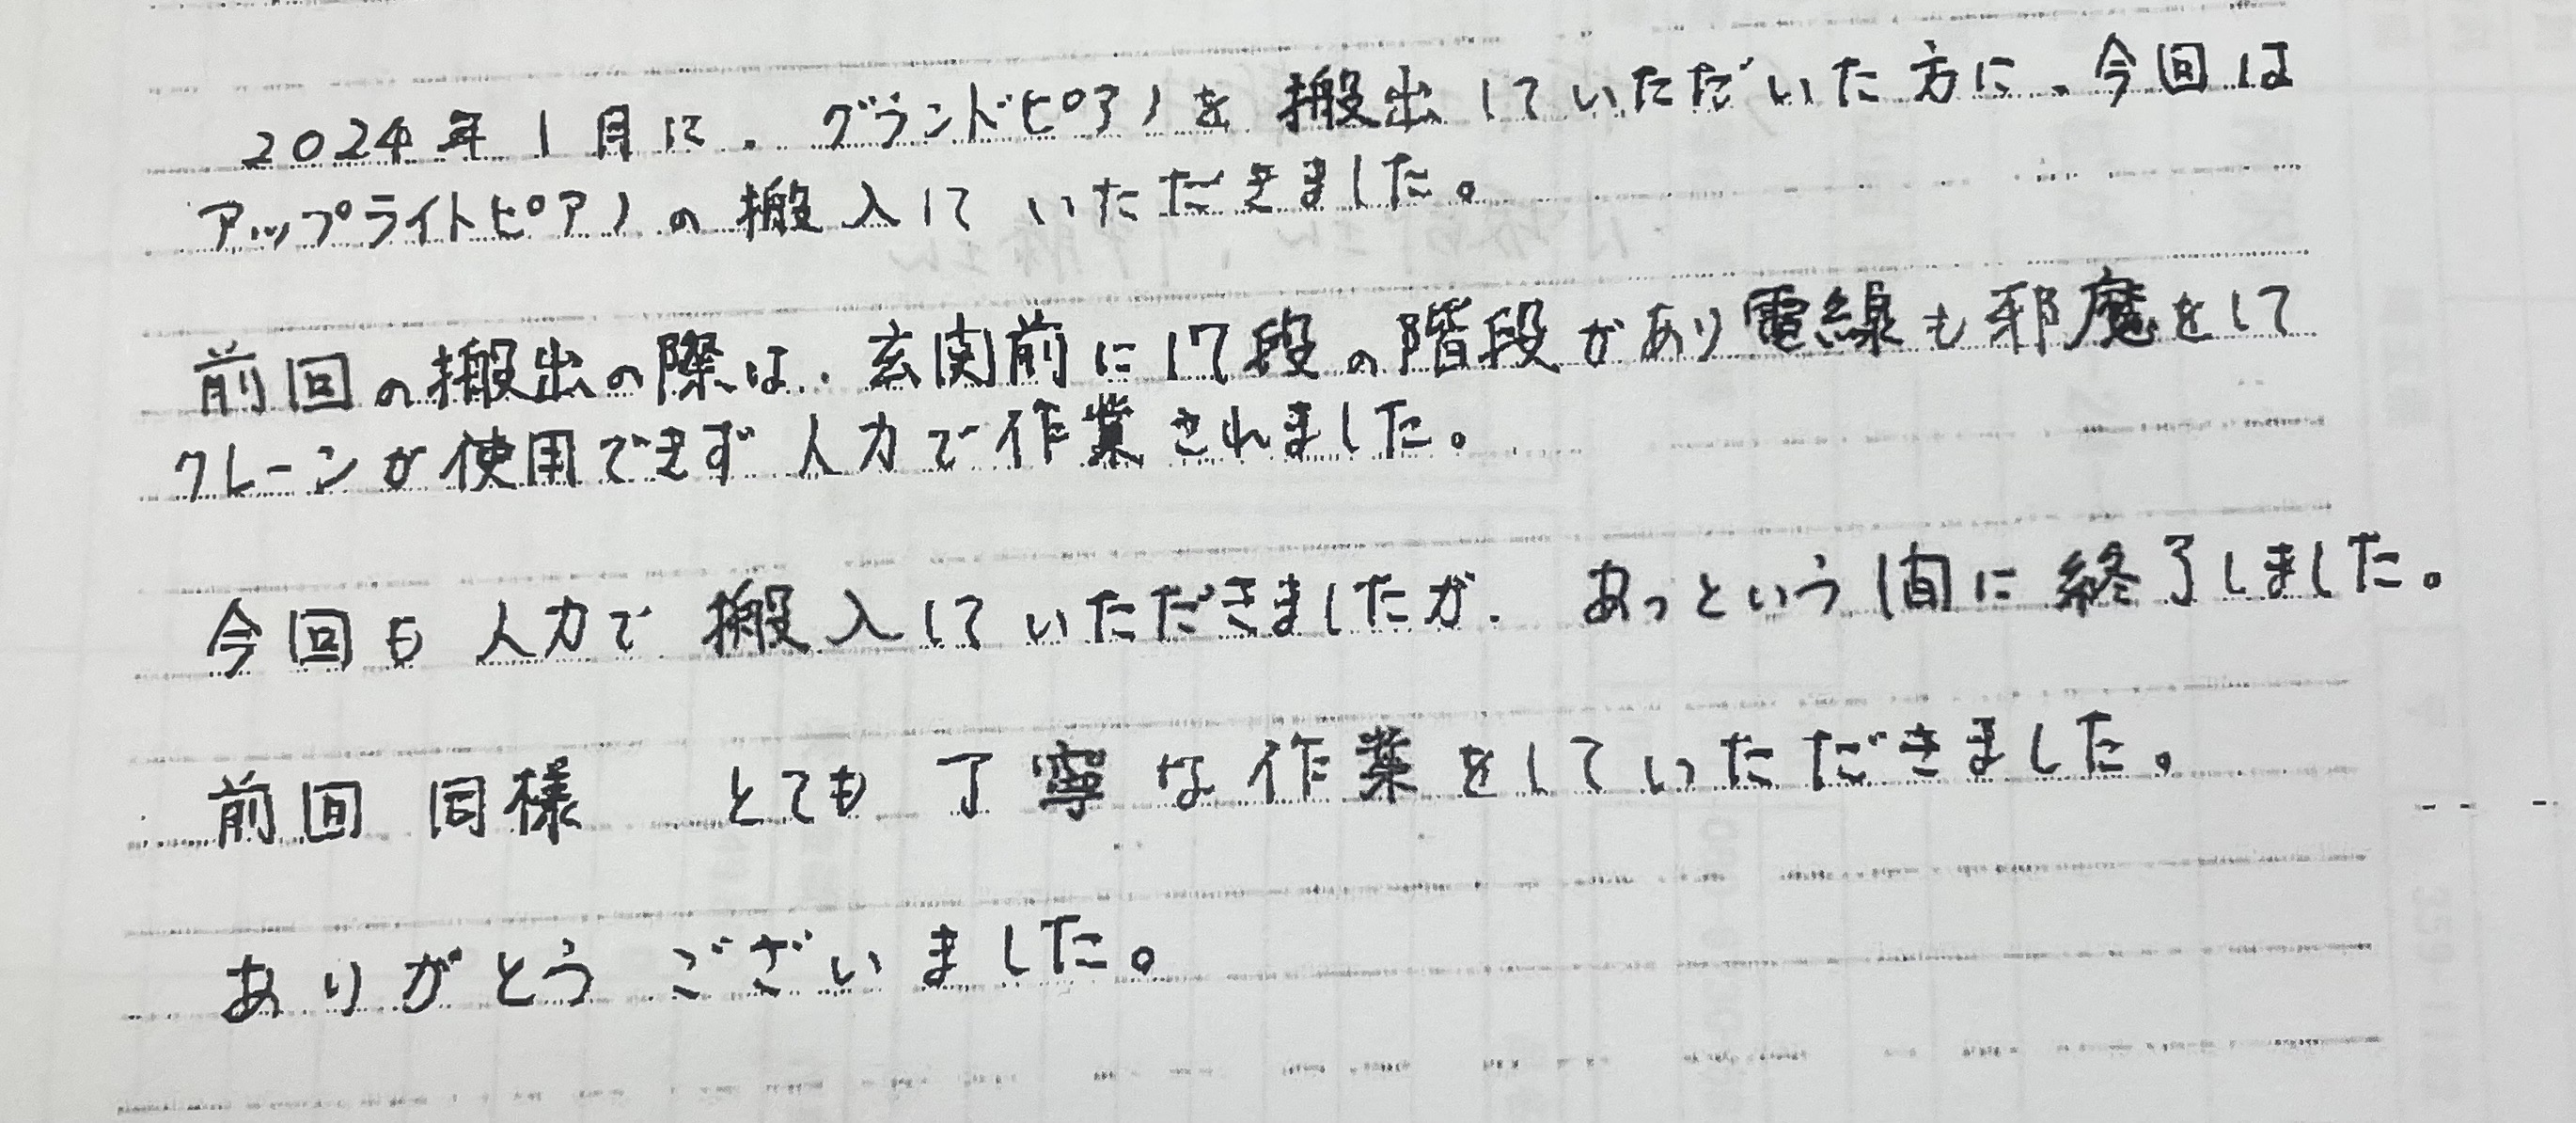 2024年1月に、グランドピアノを搬出していただいた方に、今回は
アップライトピアノの搬入にいただきました。
前回の搬出の際は、玄関前に17段の階段があり電線も邪魔をして
クレーンが使用できず人力で作業されました。
今回も人力で搬入していただきましたが、あっという間に終了しました。
前回同様 とても丁寧な作業をしていただきました。
ありがとうございました。